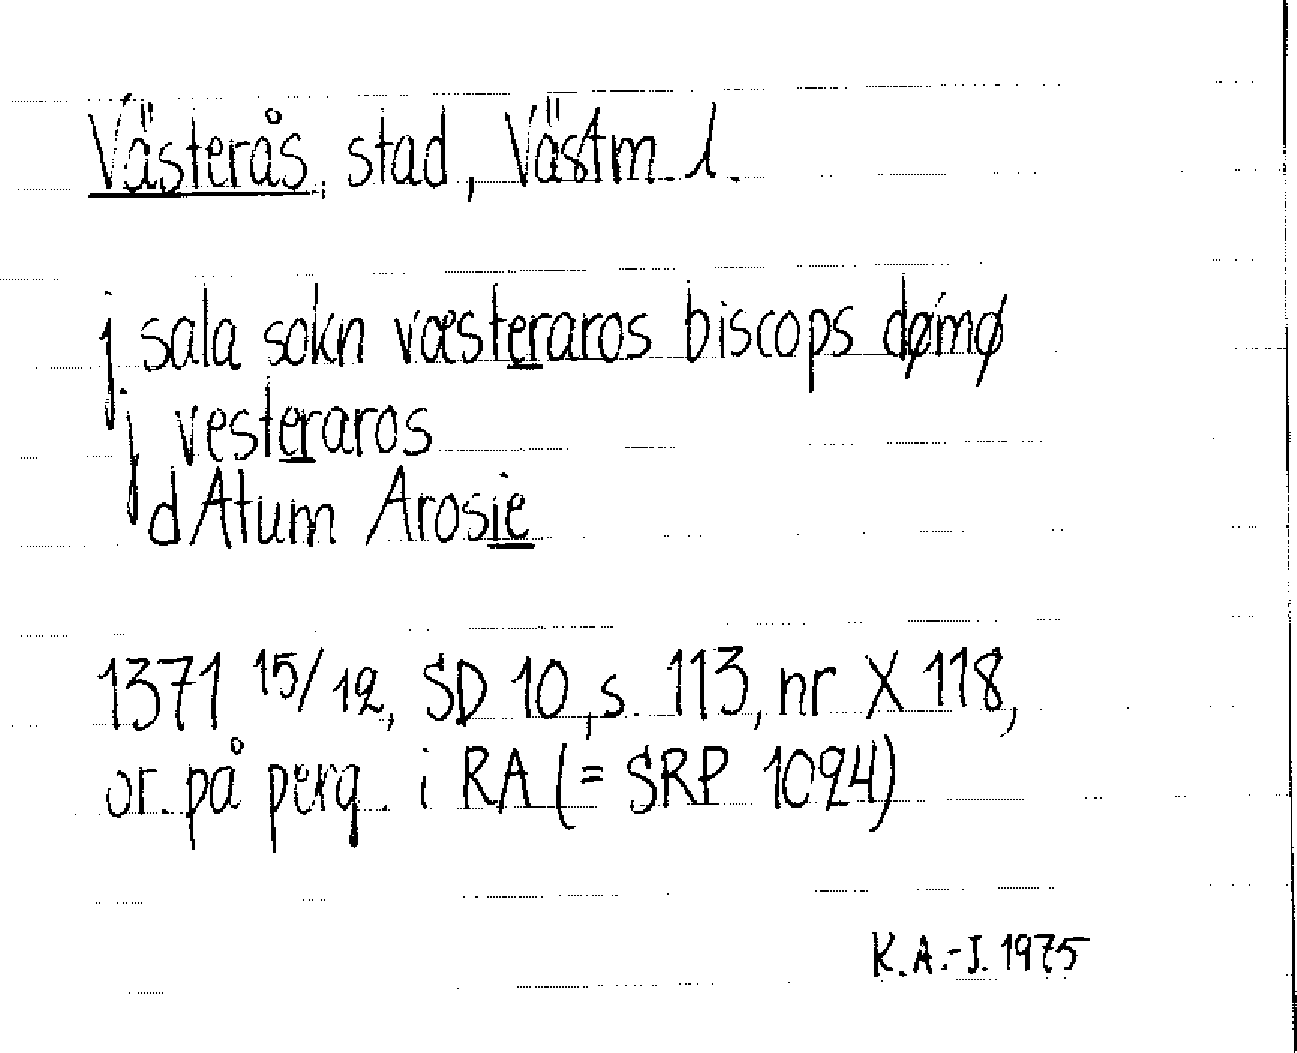 Västerås, stad, Västm. l.
j sala sokn væsteraros biscops dømø
j vesteraros
dAtum Arosie
1371 15/12, SD 10, s. 113, nr X 118,
or. på perg. i RA (= SRP 1024)
K.A.-J. 1975